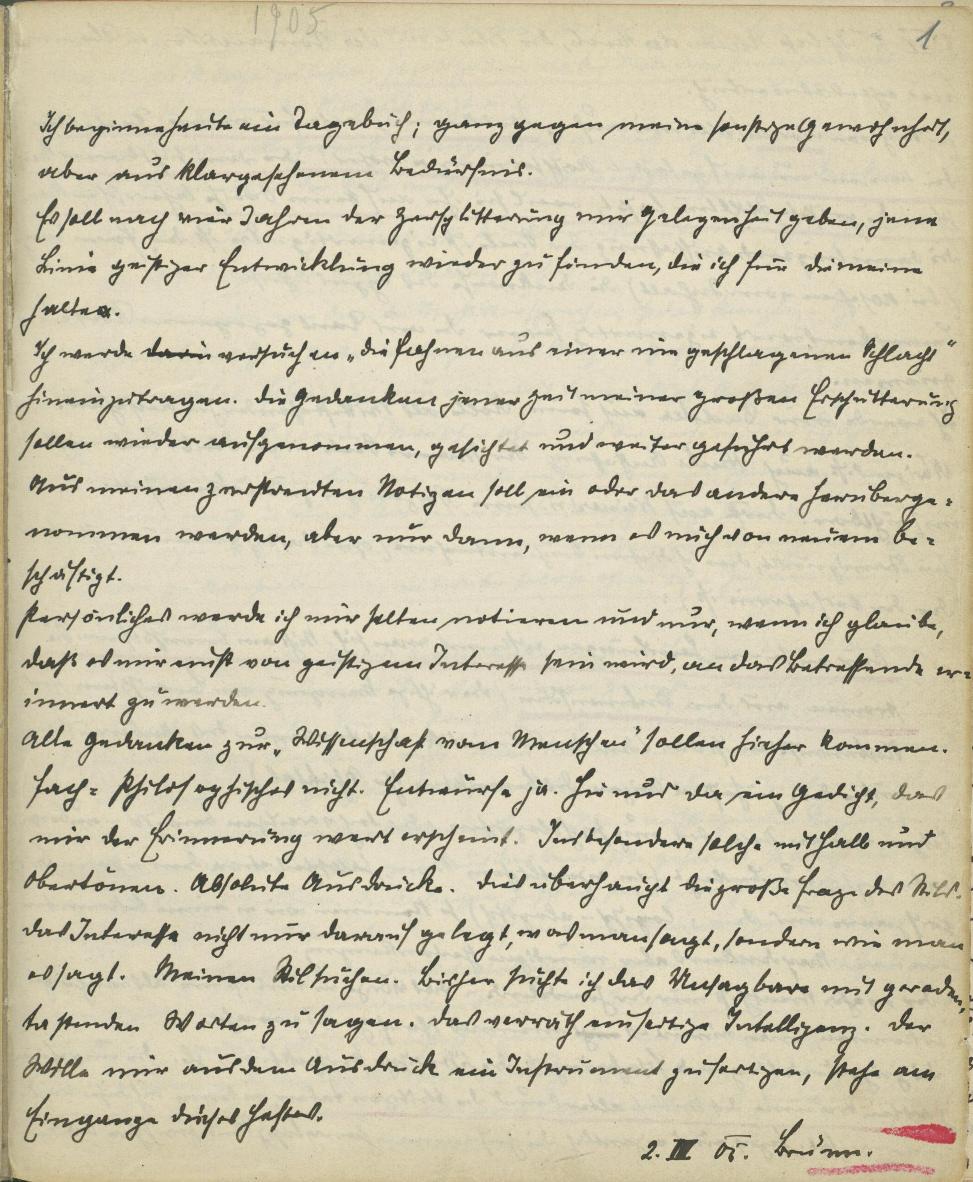 1905
1
Ich beginne heute ein Tagebuch; ganz gegen meine sonstige Gewohnheit,
aber aus klargesehenem Bedürfnis.
Es soll nach vier Jahren der Zersplitterung mir Gelegenheit geben, jene
Linie geistiger Entwicklung wieder zu finden, die ich für die meine
halte.
Ich werde darin versuchen „die Fahnen aus einer nie geschlagenen Schlacht"
hineinzutragen. Die Gedanken jener Zeit meiner großen Erschütterung
sollen wieder aufgenommen, gesichtet und weiter geführt werden.
Aus meinen zerstreuten Notizen soll ein oder das andere herüberge-
nommen werden, aber nur dann, wenn es mich von neuem be-
schäftigt.
Persönliches werde ich nur selten notieren und nur, wenn ich glaube,
daß es mir einst von geistigem Interesse sein wird, an das Betreffende er-
innert zu werden.
Alle Gedanken zur „Wissenschaft vom Menschen" sollen hieher kommen.
Fach-Philosophisches nicht. Entwürfe ja. Hie und da ein Gedicht, das
mir der Erinnerung wert erscheint. Insbesondere solche mit Halb und
Obertönen. Absolute Ausdrücke. Dies überhaupt die große Frage des Stils.
Das Interesse nicht nur darauf gelegt, was man sagt, sondern wie man
es sagt. Meinen Stil suchen. Bisher suchte ich das Unsagbare mit geraden,
tastenden Worten zu sagen. Das verräth einseitige Intelligenz. Der
Wille mir aus dem Ausdruck ein Instrument zu fertigen, stehe am
Eingange dieses Heftes.
2. III 05. Brünn.